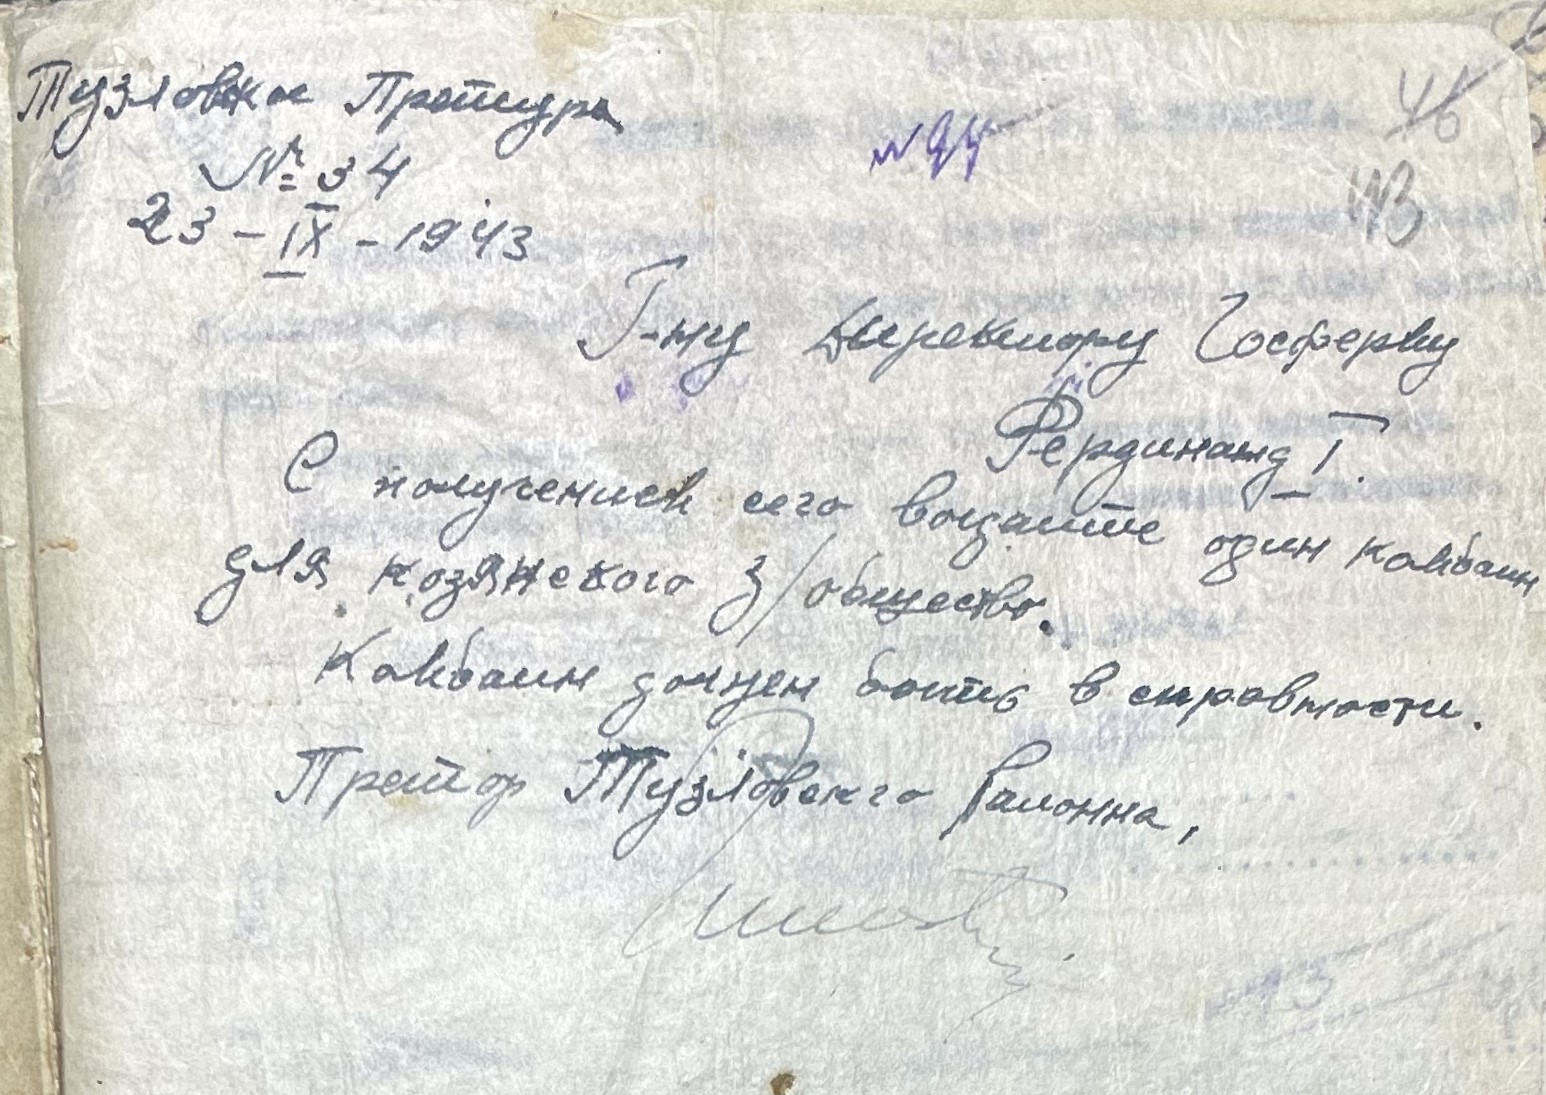 Тузловская Претура
№ 34
23 - IX - 1943
46
43
Г-ну Директору Госфермы
Фердинанд I.
С получением сего выдайте один комбаин
для козянского з/общества.
Комбаин должен быть в справности.
Претор Тузловского Районна,